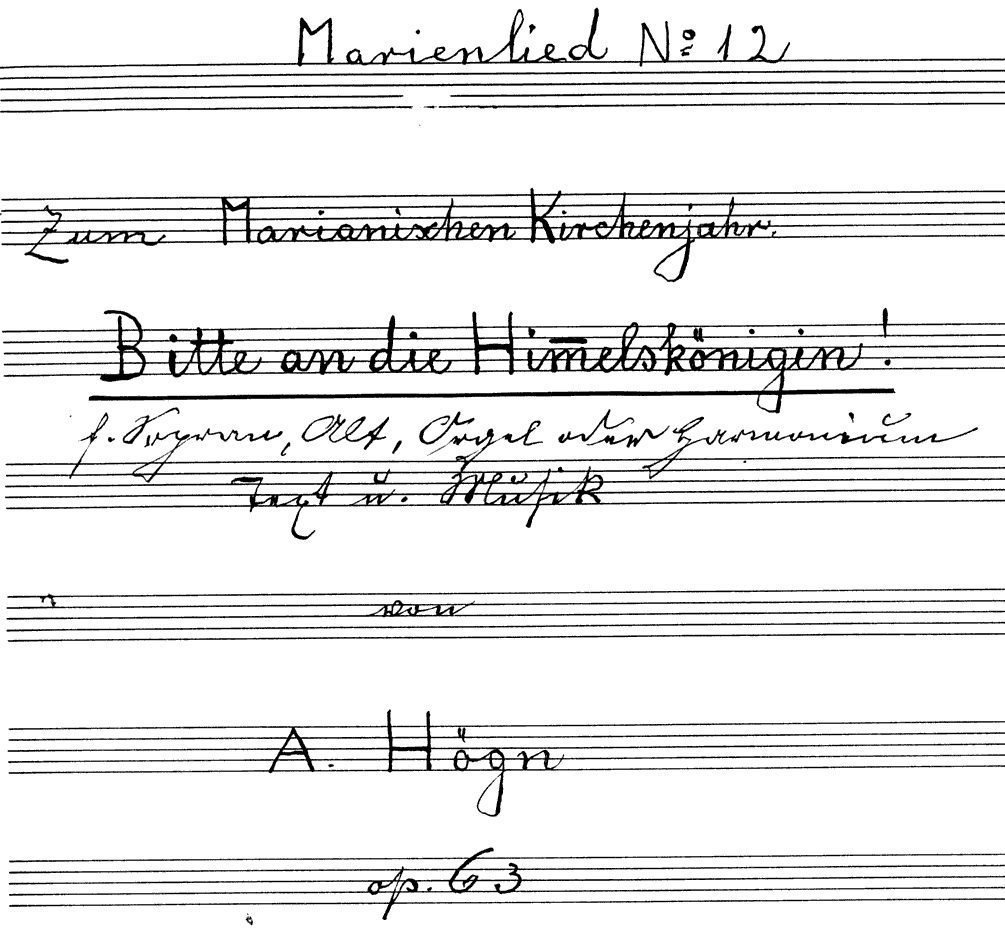 Marienlied Nº 12
Zum Marianischen Kirchenjahr.
Bitte an die Him̅elskönigin!
f. Sopran, Alt, Orgel oder Harmonium
Text u. Musik
von
A. Högn
op. 63